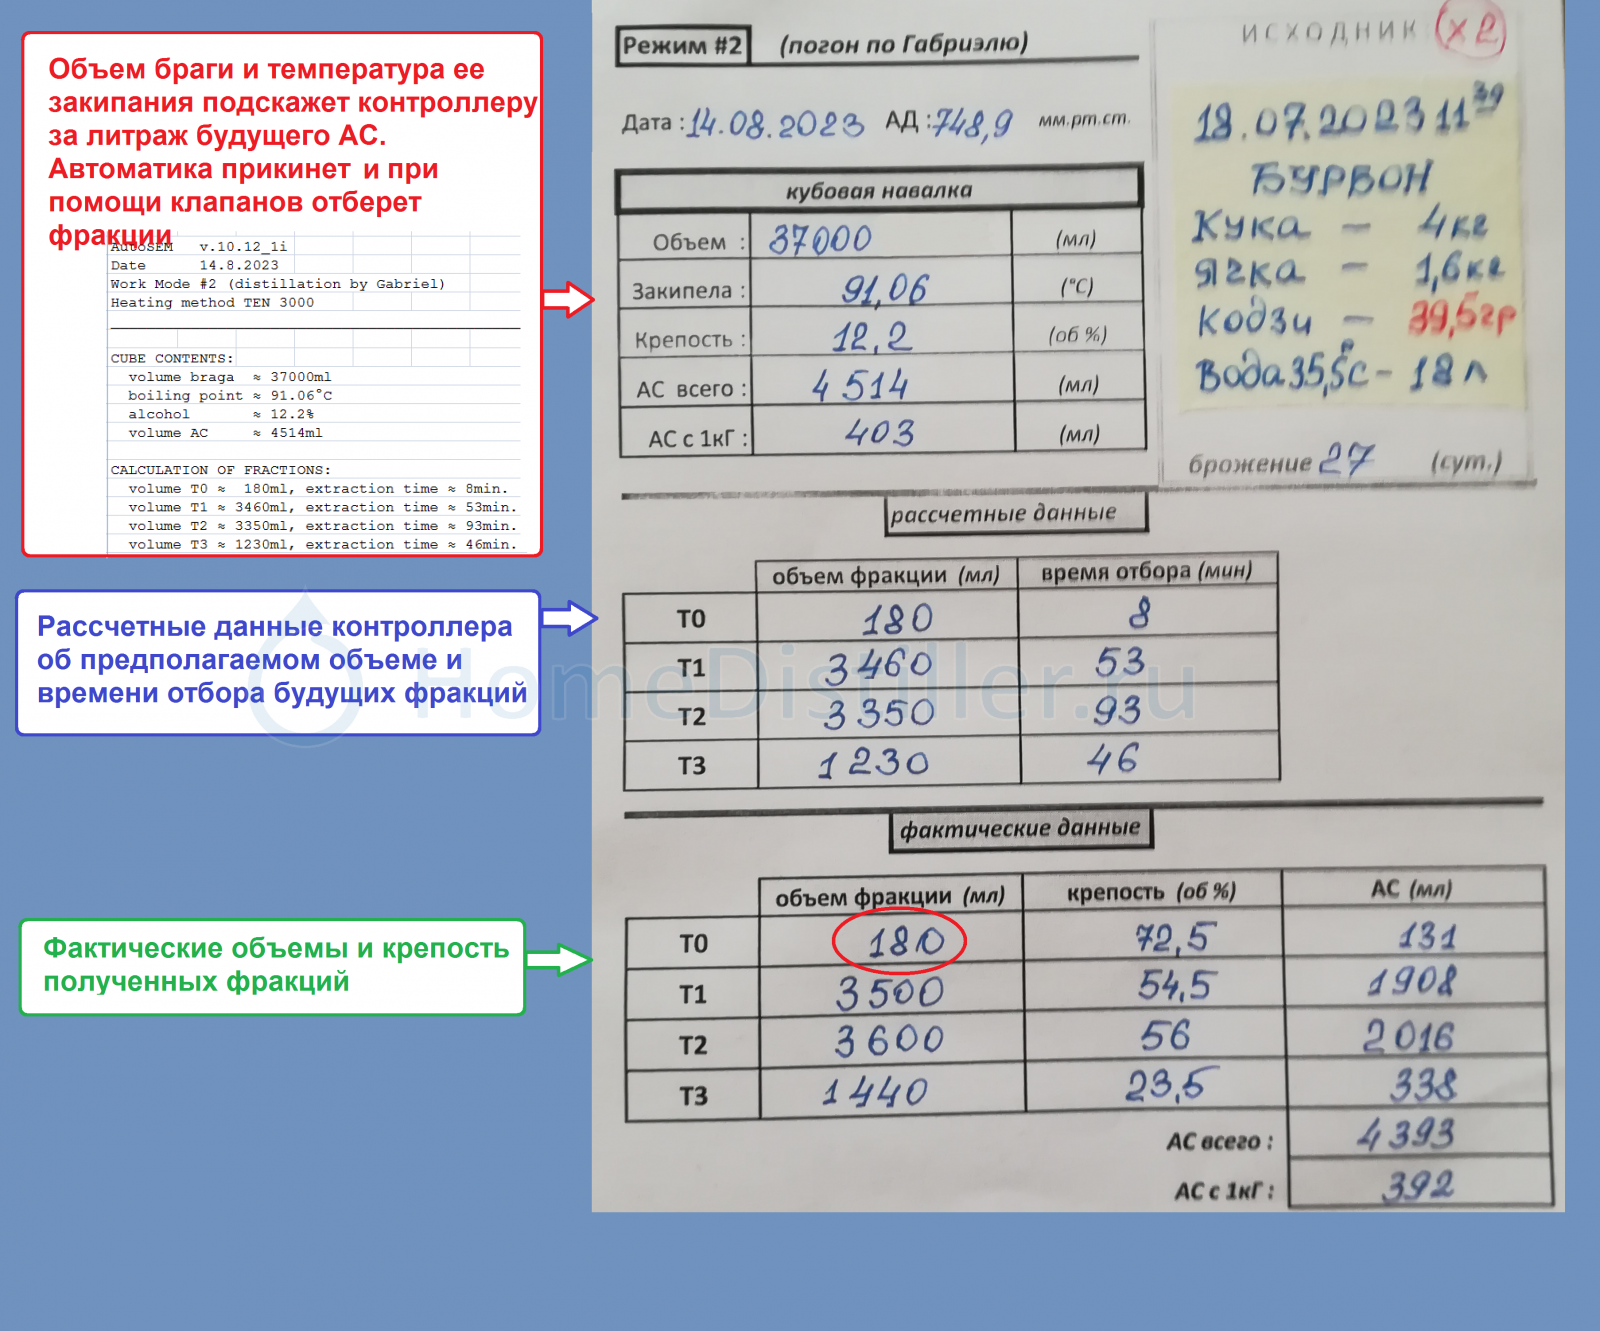 Объем браги и температура ее
закипания подскажет контроллеру
за литраж будущего АС.
Автоматика прикинет и при
помощи клапанов отберет
фракции
AutoSEM v.10.12_1i
Date 14.8.2023
Work Mode #2 (distillation by Gabriel)
Heating method TEN 3000
CUBE CONTENTS:
volume braga ≈ 37000ml
boiling point ≈ 91.06°C
alcohol ≈ 12.2%
volume AC ≈ 4514ml
CALCULATION OF FRACTIONS:
volume T0 ≈ 180ml, extraction time ≈ 8min.
volume T1 ≈ 3460ml, extraction time ≈ 53min.
volume T2 ≈ 3350ml, extraction time ≈ 93min.
volume T3 ≈ 1230ml, extraction time ≈ 46min.
Рассчетные данные контроллера
об предполагаемом объеме и
времени отбора будущих фракций
Фактические объемы и крепость
полученных фракций
Режим #2 (погон по Габриэлю)
Дата : 14.08.2023 АД : 748,9 мм.рт.ст.
кубовая навалка
Объем : 37000 (мл)
Закипела : 91,06 (°C)
Крепость : 12,2 (об %)
АС всего : 4514 (мл)
АС с 1кГ : 403 (мл)
ИСХОДНИК х2
18.07.2023 11 39
БУРБОН
Кука – 4кг
Ячка – 1,6кг
Кодзи – 39,5гр
Вода 35,5°С – 18л
брожение 27 (сут.)
рассчетные данные
объем фракции (мл) время отбора (мин)
T0 180 8
T1 3460 53
T2 3350 93
T3 1230 46
фактические данные
объем фракции (мл) крепость (об %) АС (мл)
T0 180 72,5 131
T1 3500 54,5 1908
T2 3600 56 2016
T3 1440 23,5 338
АС всего : 4393
АС с 1кГ : 392
HomeDistiller.ru